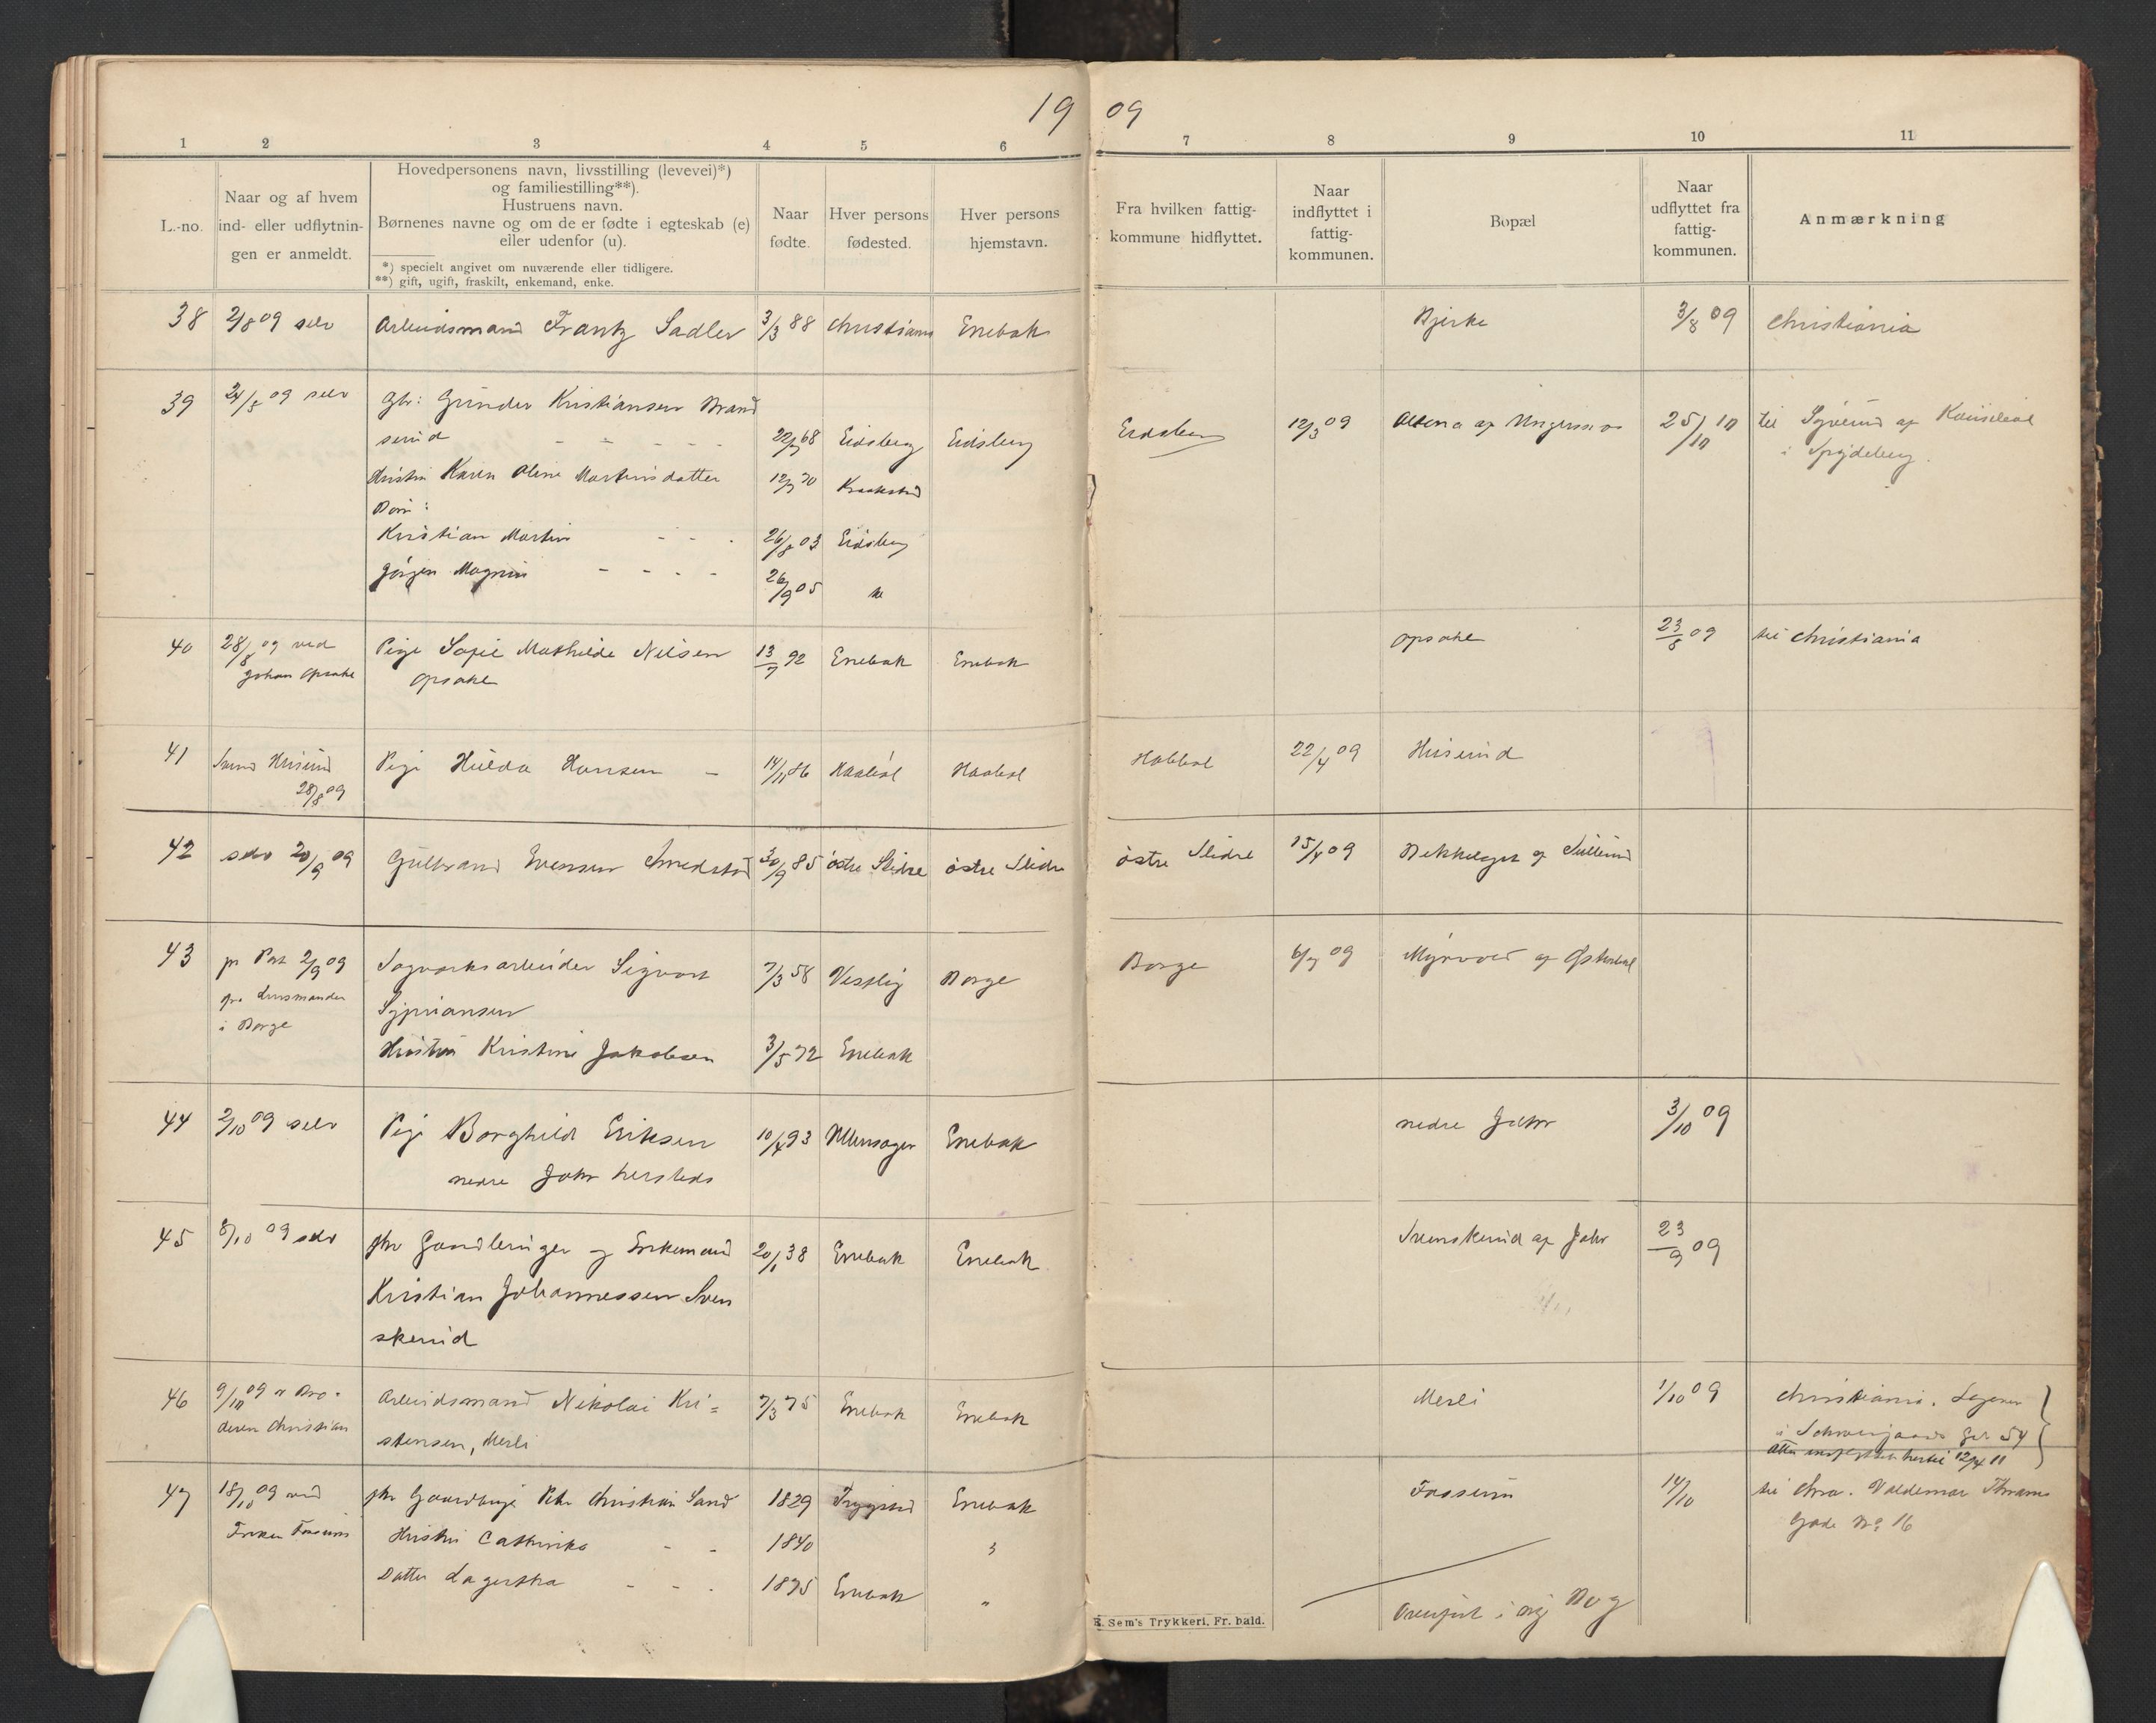 19 09
1 2 3 4 5 6 7 8 9 10 11
L.-no.
Naar og af hvem
ind- eller udflytnin-
gen er anmeldt.
Hovedpersonens navn, livsstilling (levevei)*)
og familiestilling**).
Hustruens navn.
Børnenes navne og om de er fødte i egteskab (e)
eller udenfor (u).
*) specielt angivet om nuværende eller tidligere.
**) gift, ugift, fraskilt, enkemand, enke.
Naar
fødte.
Hver persons
fødested.
Hver persons
hjemstavn.
Fra hvilken fattig-
kommune hidflyttet.
Naar
indflyttet i
fattig-
kommunen.
Bopæl
Naar
udflyttet fra
fattig-
kommunen.
Anmærkning
38 2/8 09 selv Arbeidsmand Frantz Sadler 3/3 88 Christiania Enebak Bjerke 3/8 09 Christiania
39 24/5 09 selv Gbr: Gunder Kristiansen Brand
serud - - - - - 68 Eidsberg Eidsberg Eidsberg 12/3 09 af 25/10 10 til af
i Spydeberg.
Hustru Karen Oline Martinsdatter 70 Kraakstad
Børn:
Kristian Martin - - - 26/8 03 Eidsberg
Jørgen Magnus - - - - 26/9 05 "
40 28/8 09 ved Pige Sofie Mathilde Nilsen 13/7 92 Enebak Enebak Opsahl 23/8 09 til Christiania
Johan Opsahl Opsahl
41 Huserud Pige Hulda Hansen - 14/11 86 Haabøl Haabøl Haabøl 22/4 09 Huserud
28/8 09
42 selv 20/9 09 Gulbrand Evensen 30/9 85 østre Slidre østre Slidre østre Slidre 15/4 09 af
43 pr Post 2/9 09 Sagverksarbeider Sigvart 7/3 58 Vestby Borge Borge 6/7 09 Myrvold af
fra Lensmanden Sypriansen
i Borge
Hustru Kristine Jakobsen 3/5 72 Enebak
44 2/10 09 selv Pige Borghild Eriksen 10/4 93 Ullensager Enebak nedre Jahr 3/10 09
nedre Jahr hersteds
45 8/10 09 selv fhv Gaardbruger og Enkemand 20/1 38 Enebak Enebak Svenskerud af Jahr 23/9 09
Kristian Johannessen Sven
skerud
46 9/10 09 v Bro- Arbeidsmand Nikolai Kri= 7/3 75 Enebak Enebak Merli 1/10 09 Christiania.
deren Christian stensen, Merli i Schweigaards Gd 54
atter indflyttet hertil 12/4 11
47 18/10 09 ved fhv Gaardbruger Petr Christian Sand 1829 Trygstad Enebak Fosserud 14/10 til Chra. Valdemar Thranes
Gade No 16
Hustru Cathinka - - 1840 "
Datter Lagertha - - - 1875 Enebak "
Overført i ny Bog
E. Sem's Trykkeri, Fr. hald.